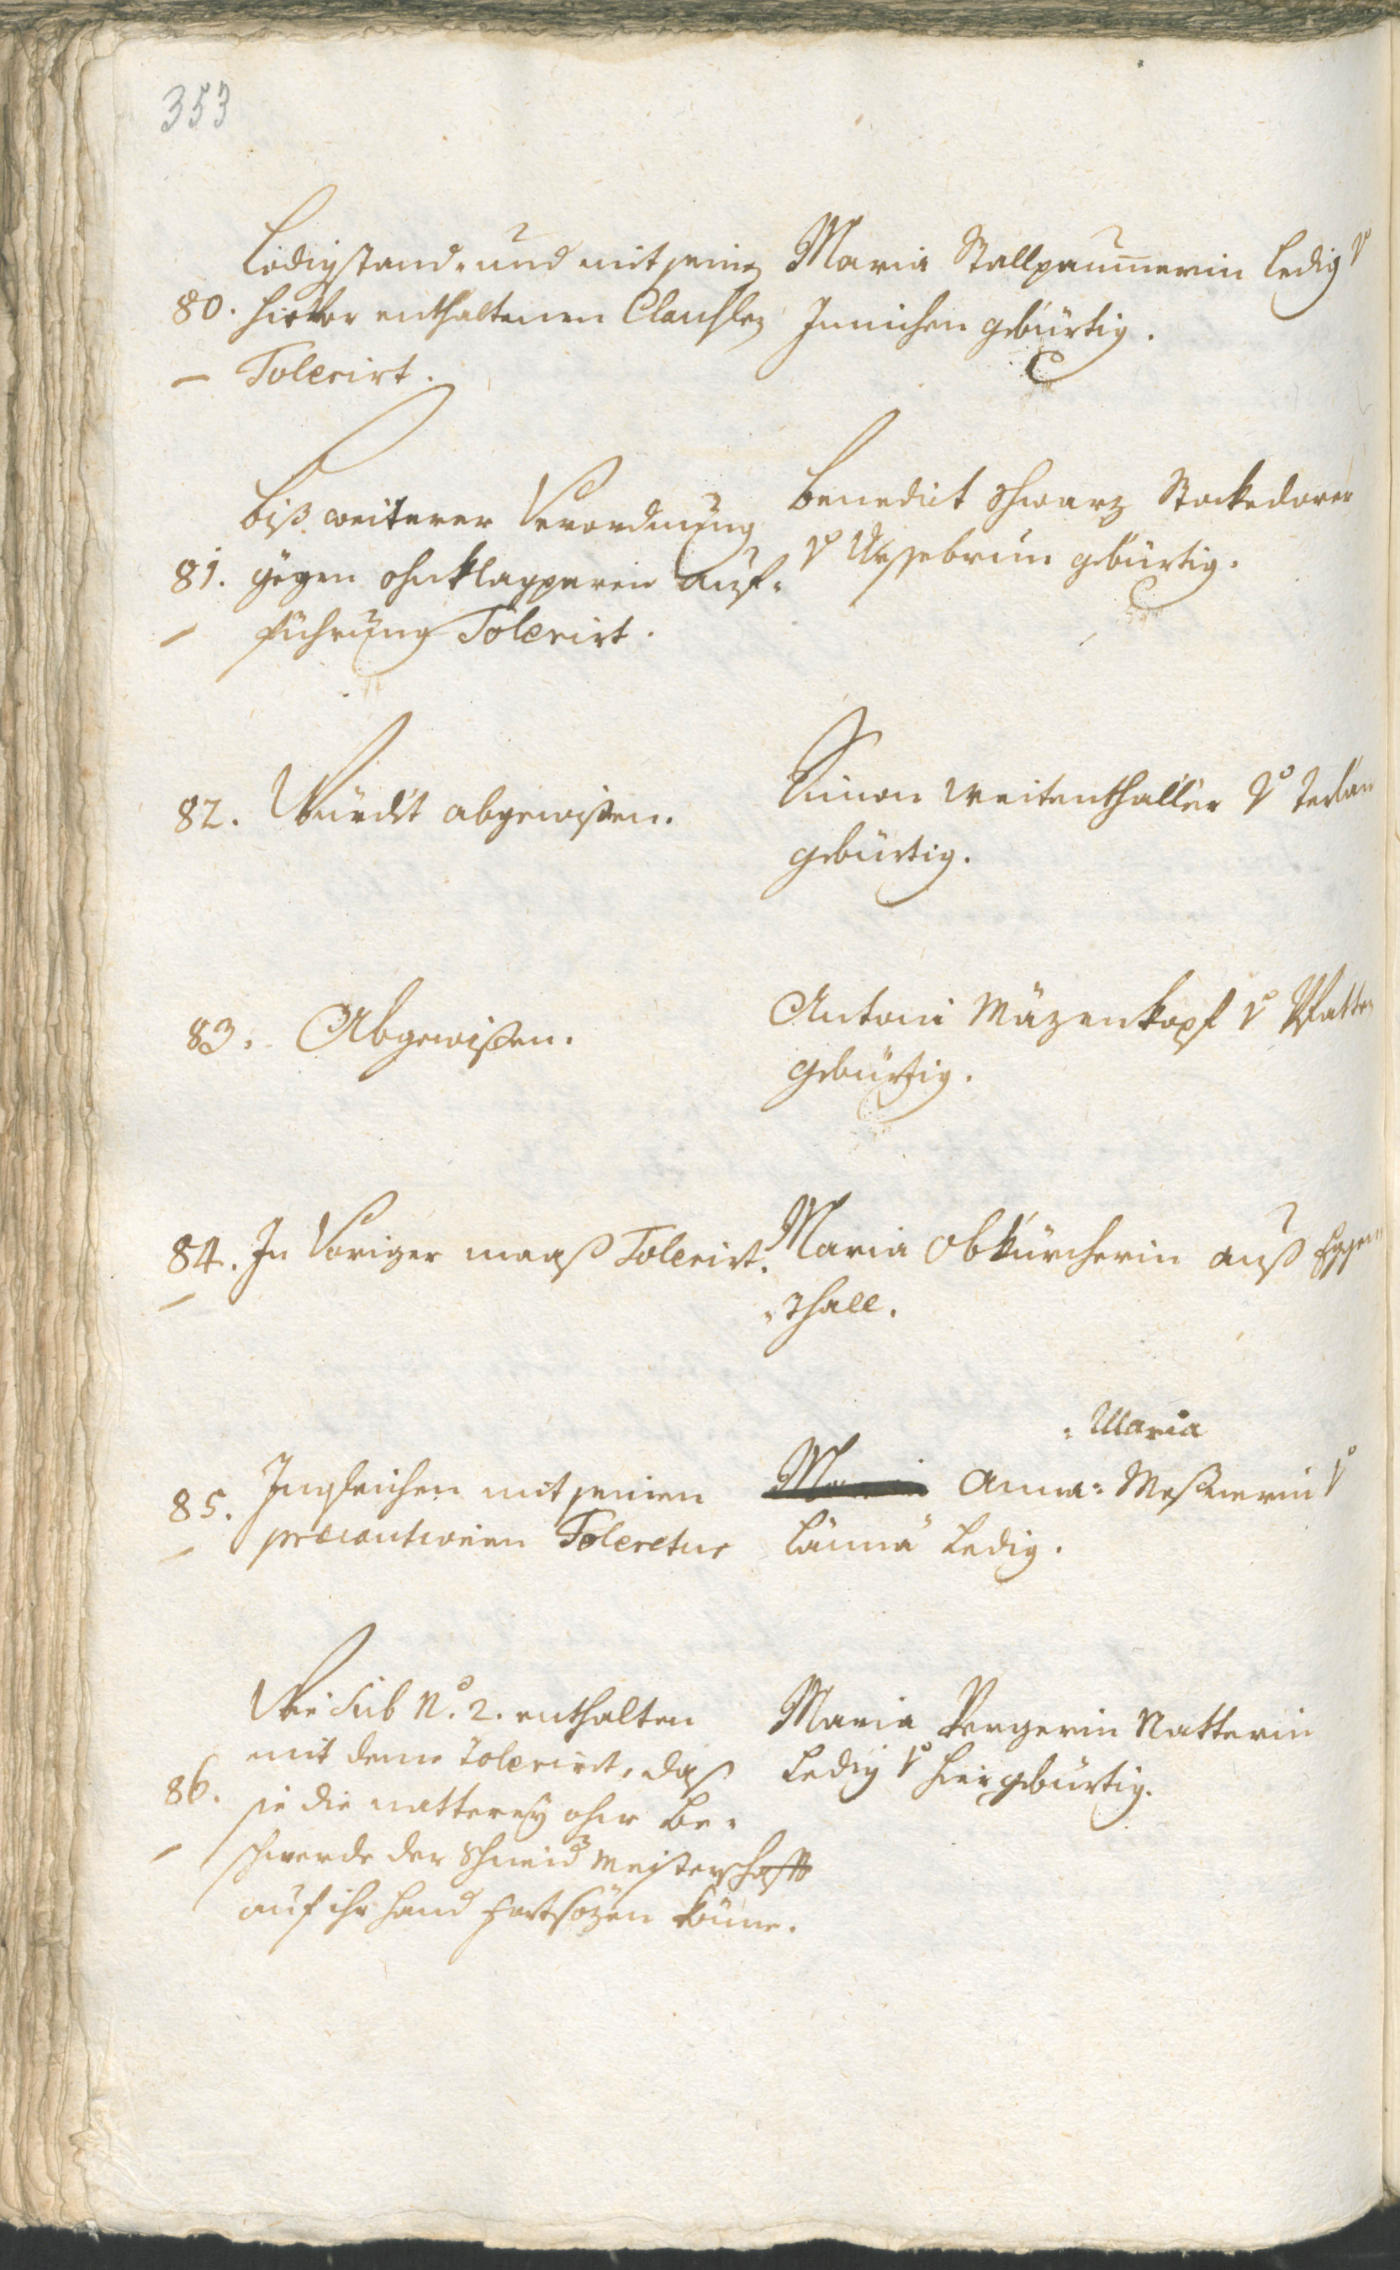 353
Ledigstand, und mit jenen
80. hievor enthaltenen Clauslen
Tolerirt.
Maria Stallpaumerin Ledig vo
Innichen gebürtig.
Biß weiterer Verordnung
81. gegen ohnklagparen auf-
führung Tolerirt.
Benedict Schwarz Stockedorer
vo Wessebrun gebürtig.
82. Würdt abgewißen.
Simon Weitenthaller vo Terlan
gebürtig.
83. Abgewißen.
Antoni Mäzenkopf vo Watte
gebürtig.
84. In Voriger maaß Tolerirt.
Maria Obkürcherin auß Eggen
-thall.
85. Ingleichen mit jenen
precautionen Toleretur
: Maria
Anna: Meßnerin vo
Ledig.
Wie sub No. 2. enthalten
mit deme Tolerirt, daß
86. sie die natterey ohne Be-
schwerde der Schneid Meisterschafft
auf ihr hand fortsözen könne.
Maria Pergerin Natterin
Ledig vo hier gebürtig.